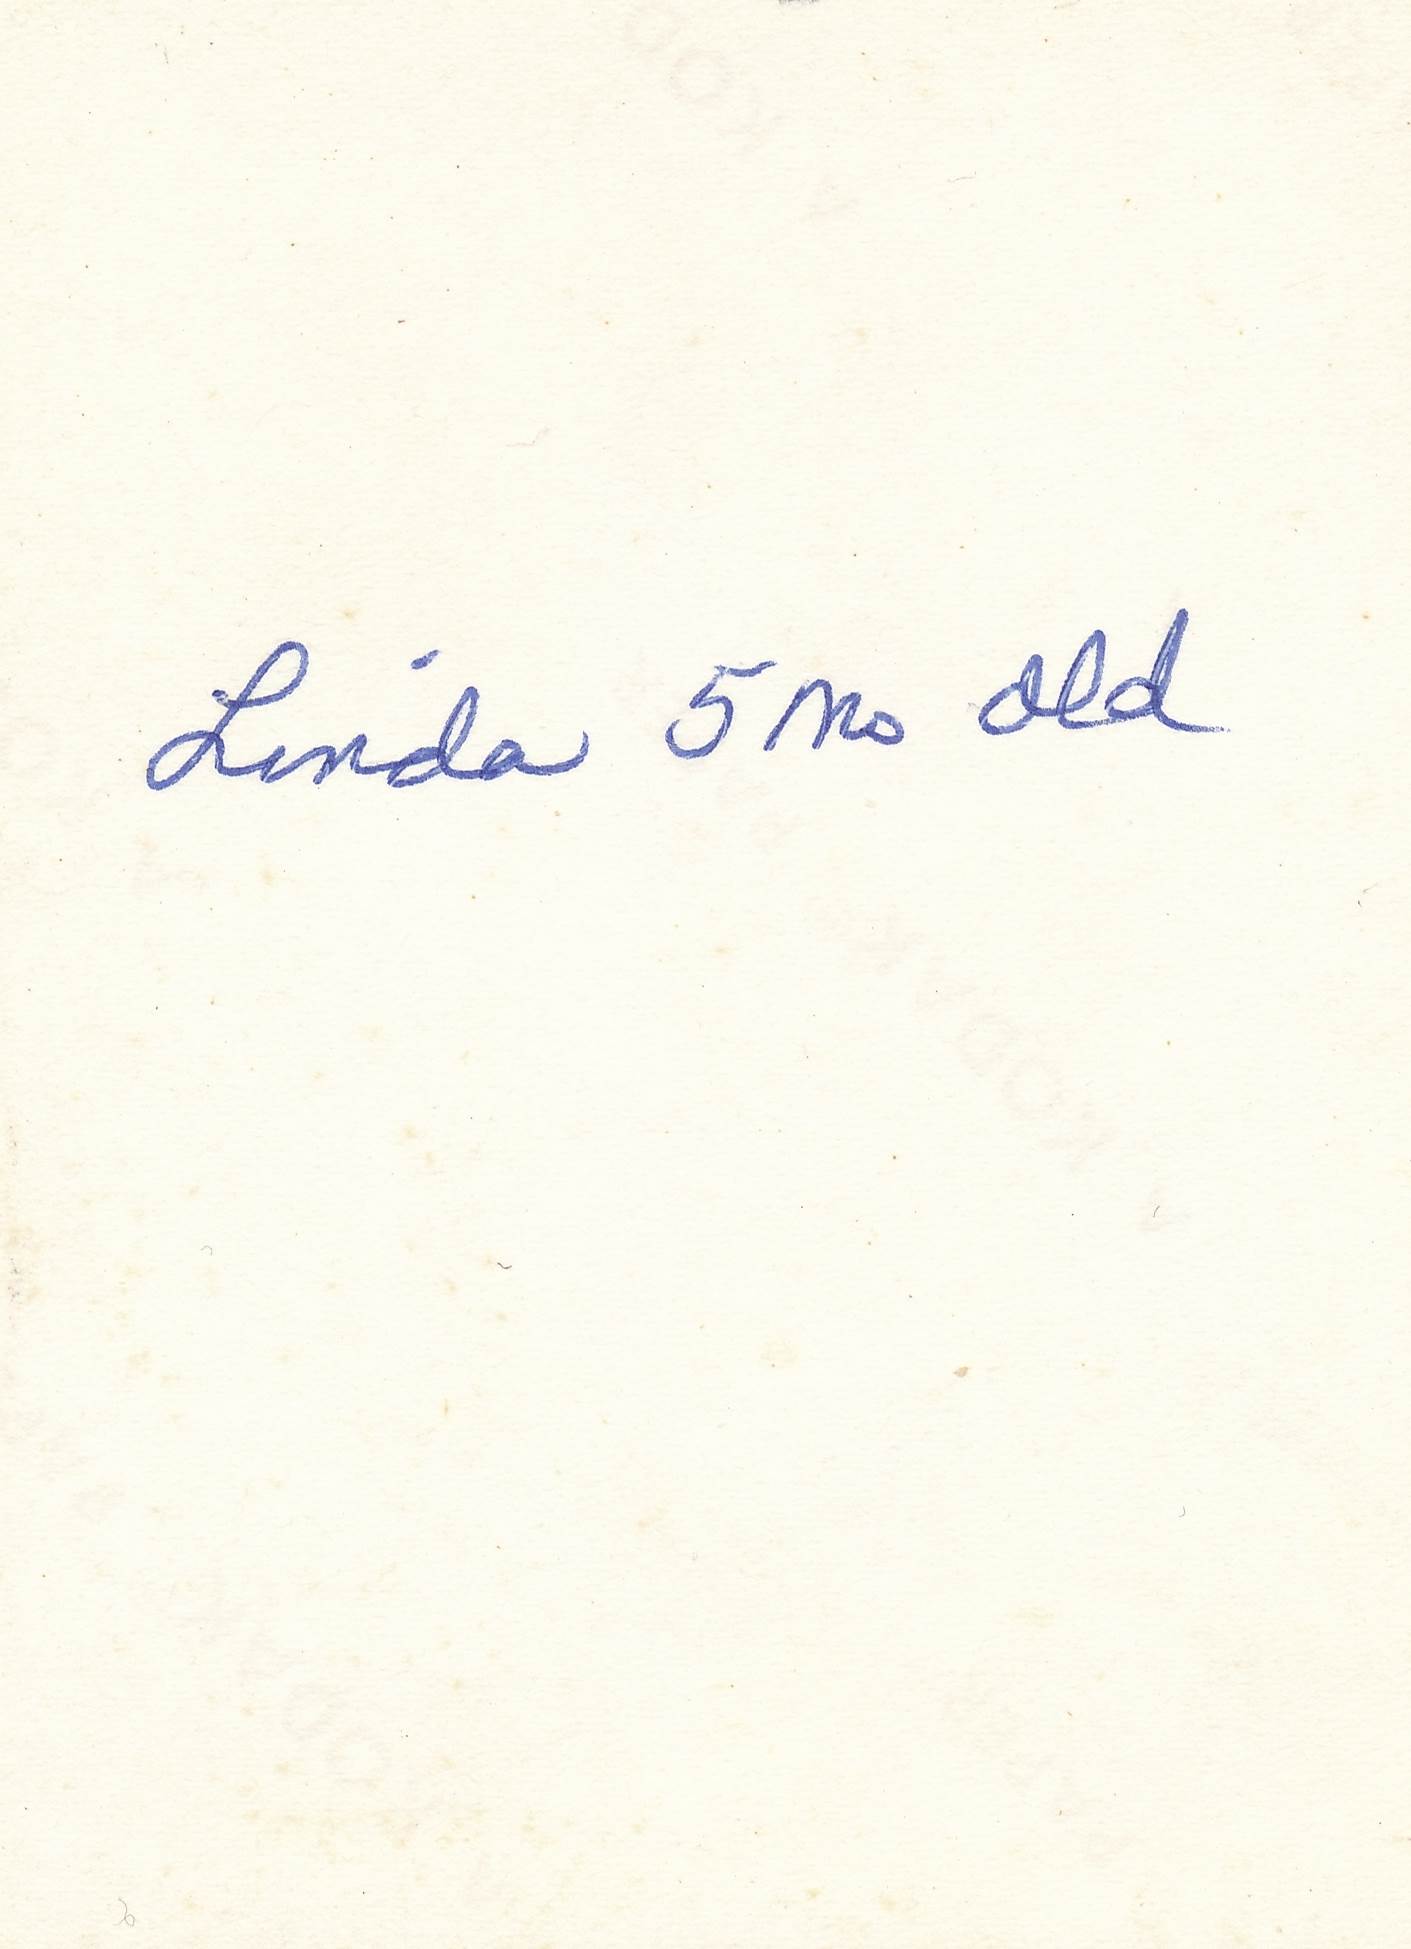 Linda 5 mo old